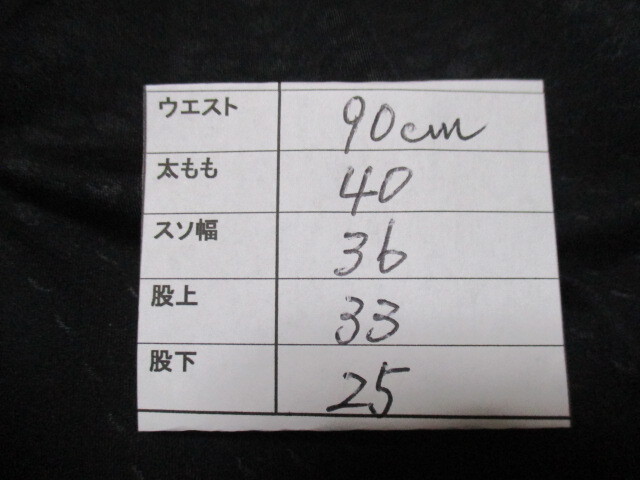 ウエスト 90cm
太もも 40
スソ幅 36
股上 33
股下 25